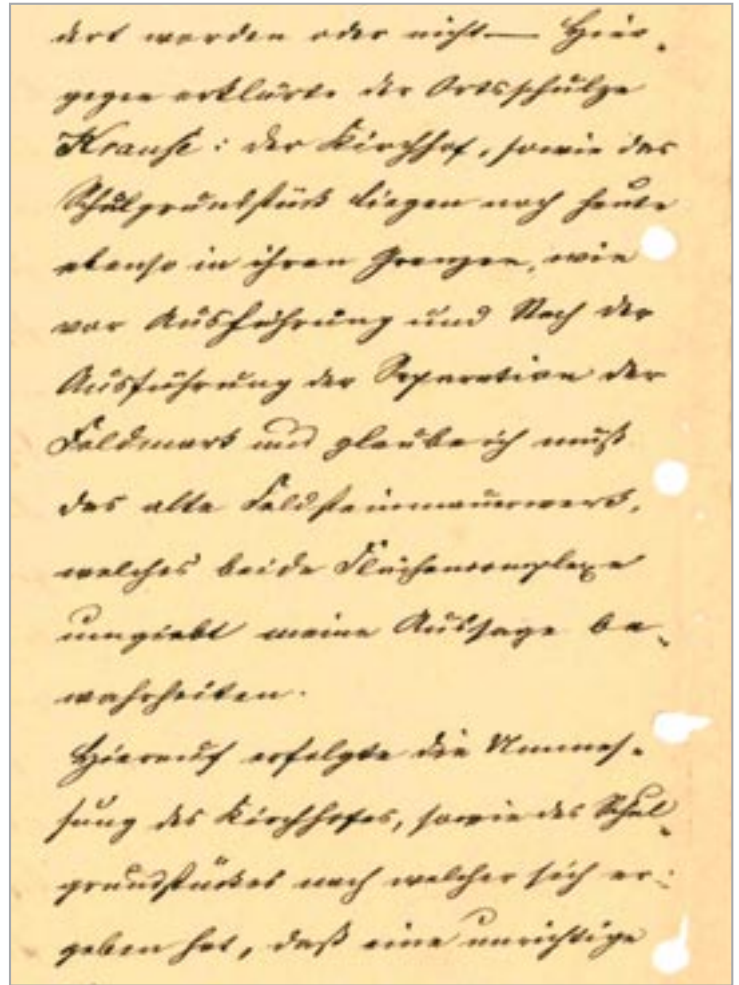 dert worden oder nicht — Hier-
gegen erklärte der Ortsschulze
Krause: der Kirchhof, sowie das
Schulgrundstück liegen noch heute
ebenso in ihren Grenzen, wie
vor Ausführung und Nach der
Ausführung der Separation der
Feldmark und glaube ich muß
das alte Feldsteinmauerwerk,
welches beide Flächencomplexe
umgiebt meine Aussage be-
wahrheiten.
Hierauf erfolgte die Ummes-
sung des Kirchhofes, sowie des Schul-
grundstückes nach welcher sich er-
geben hat, daß eine unrichtige